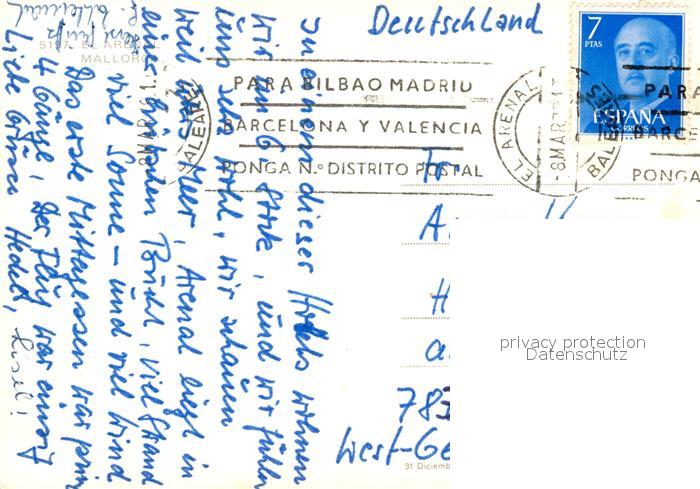 Deutschland
7
PTAS
ESPAÑA
CORREOS
5197 EL ARENAL
MALLORCA
PARA BILBAO MADRID
BARCELONA Y VALENCIA
PONGA N.º DISTRITO POSTAL
EL ARENAL
8 MAR
BALEARES
PARA
BARCE
PONGA
8 MAR
BALEARES
In einem dieser Hotels wohnen
wir im 6. Stock, und wir fühlen
uns sehr wohl, wir schauen
weit übers Meer, Arenal liegt in
einer hübschen Bucht, viel Strand
viel Sonne - und viel Wind
Das erste Mittagessen war prima
4 Gänge, der Flug war
Liebe Grüsse Hedel, Liesel!
Fr.
A.
H
a
783
West-Ge
31 Diciemb
privacy protection
Datenschutz